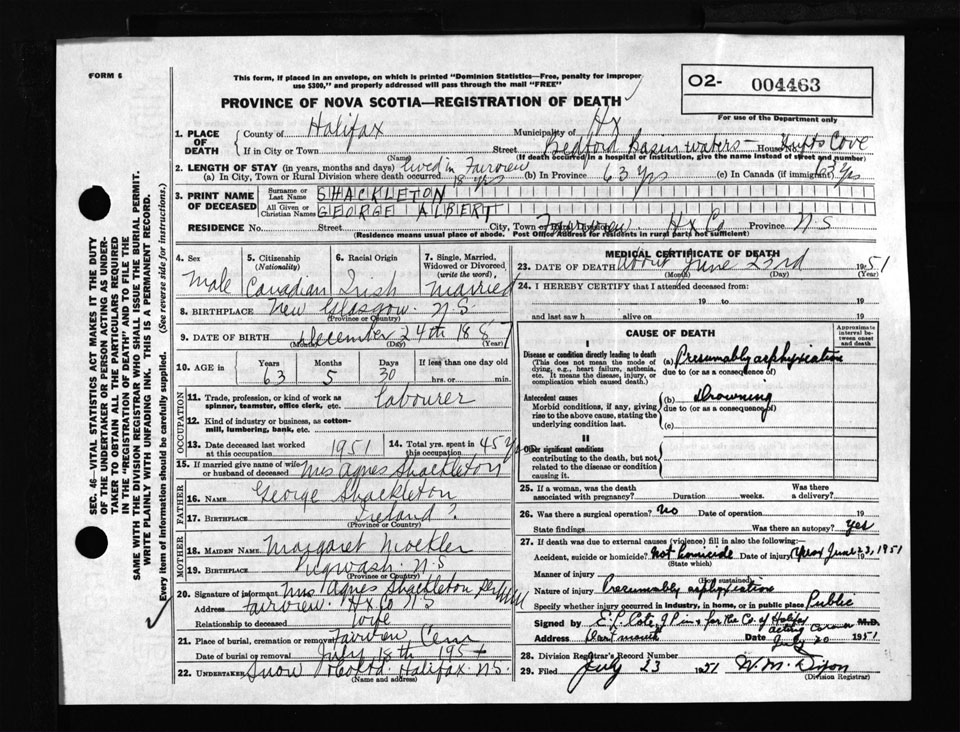 FORM 6
This form, if placed in an envelope, on which is printed "Dominion Statistics—Free, penalty for improper
use $300," and properly addressed will pass through the mail "FREE"
PROVINCE OF NOVA SCOTIA—REGISTRATION OF DEATH
O2- 004463
For use of the Department only
1. PLACE OF DEATH
County of Halifax Municipality of Hx
If in City or Town Street Bedford Basin waters— House No. Tufts Cove
(Name) (If death occurred in a hospital or institution, give the name instead of street and number)
2. LENGTH OF STAY (in years, months and days) Lived in Fairview
(a) In City, Town or Rural Division where death occurred 18 yrs (b) In Province 63 Yrs (c) In Canada (if immigrant) 63 Yrs
3. PRINT NAME OF DECEASED
Surname or Last Name SHACKLETON
All Given or Christian Names GEORGE ALBERT
RESIDENCE No. Street City, Town or Rural Division Fairview Hx Co Province N S
(Residence means usual place of abode. Post Office Address for residents in rural parts not sufficient)
4. Sex Male
5. Citizenship (Nationality) Canadian
6. Racial Origin Irish
7. Single, Married, Widowed or Divorced (write the word) Married
8. BIRTHPLACE New Glasgow. N.S.
(Province or Country)
9. DATE OF BIRTH December 24th 1887
(Month) (Day) (Year)
10. AGE in Years 63 Months 5 Days 30 If less than one day old hrs. or min.
OCCUPATION
11. Trade, profession, or kind of work as spinner, teamster, office clerk, etc. Labourer
12. Kind of industry or business, as cotton-mill, lumbering, bank, etc.
13. Date deceased last worked at this occupation 1951
14. Total yrs. spent in this occupation 45 Yrs
15. If married give name of wife or husband of deceased Mrs Agnes Shackleton
FATHER
16. NAME George Shackleton
17. BIRTHPLACE Ireland ?
(Province or Country)
MOTHER
18. MAIDEN NAME Margaret Mockler
19. BIRTHPLACE Pugwash. N.S
(Province or Country)
20. Signature of informant Mrs Agnes Shackleton
Address Fairview. Hx Co N S
Relationship to deceased Wife
21. Place of burial, cremation or removal Fairview Cem
Date of burial or removal July 18th 1951
22. UNDERTAKER Snow & Co Ltd. Halifax N.S.
(Name and address)
MEDICAL CERTIFICATE OF DEATH
23. DATE OF DEATH About June 23rd 1951
(Month) (Day) (Year)
24. I HEREBY CERTIFY that I attended deceased from:
19 to 19
and last saw h alive on 19
CAUSE OF DEATH
Approximate interval between onset and death
I
Disease or condition directly leading to death
(This does not mean the mode of dying, e.g., heart failure, asthenia, etc. It means the disease, injury, or complication which caused death.)
(a) Presumably asphyxiation
due to (or as a consequence of)
Antecedent causes
Morbid conditions, if any, giving rise to the above cause, stating the underlying condition last.
(b) Drowning
due to (or as a consequence of)
(c)
II
Other significant conditions
contributing to the death, but not related to the disease or condition causing it.
25. If a woman, was the death associated with pregnancy? Duration weeks. Was there a delivery?
26. Was there surgical operation? No Date of operation 19
State findings Was there an autopsy? Yes
27. If death was due to external causes (violence) fill in also the following:—
Accident, suicide or homicide? Not homicide Date of injury aprox June 23, 1951
(State which)
Manner of injury
(How sustained)
Nature of injury Presumably asphyxiation
Specify whether injury occurred in industry, in home, or in public place Public
Signed by E P Cole J P in & for the Co. of Halifax acting Coroner M.D.
Address Dartmouth Date July 20 1951
28. Division Registrar's Record Number
29. Filed July 23 1951 W. M. Dixon
(Division Registrar)
SEC. 46—VITAL STATISTICS ACT MAKES IT THE DUTY
OF THE UNDERTAKER OR PERSON ACTING AS UNDER-
TAKER TO OBTAIN ALL THE PARTICULARS REQUIRED
IN THE "REGISTRATION OF DEATH" AND TO FILE THE
SAME WITH THE DIVISION REGISTRAR WHO SHALL ISSUE THE BURIAL PERMIT.
WRITE PLAINLY WITH UNFADING INK. THIS IS A PERMANENT RECORD.
Every item of information should be carefully supplied. (See reverse side for instructions.)